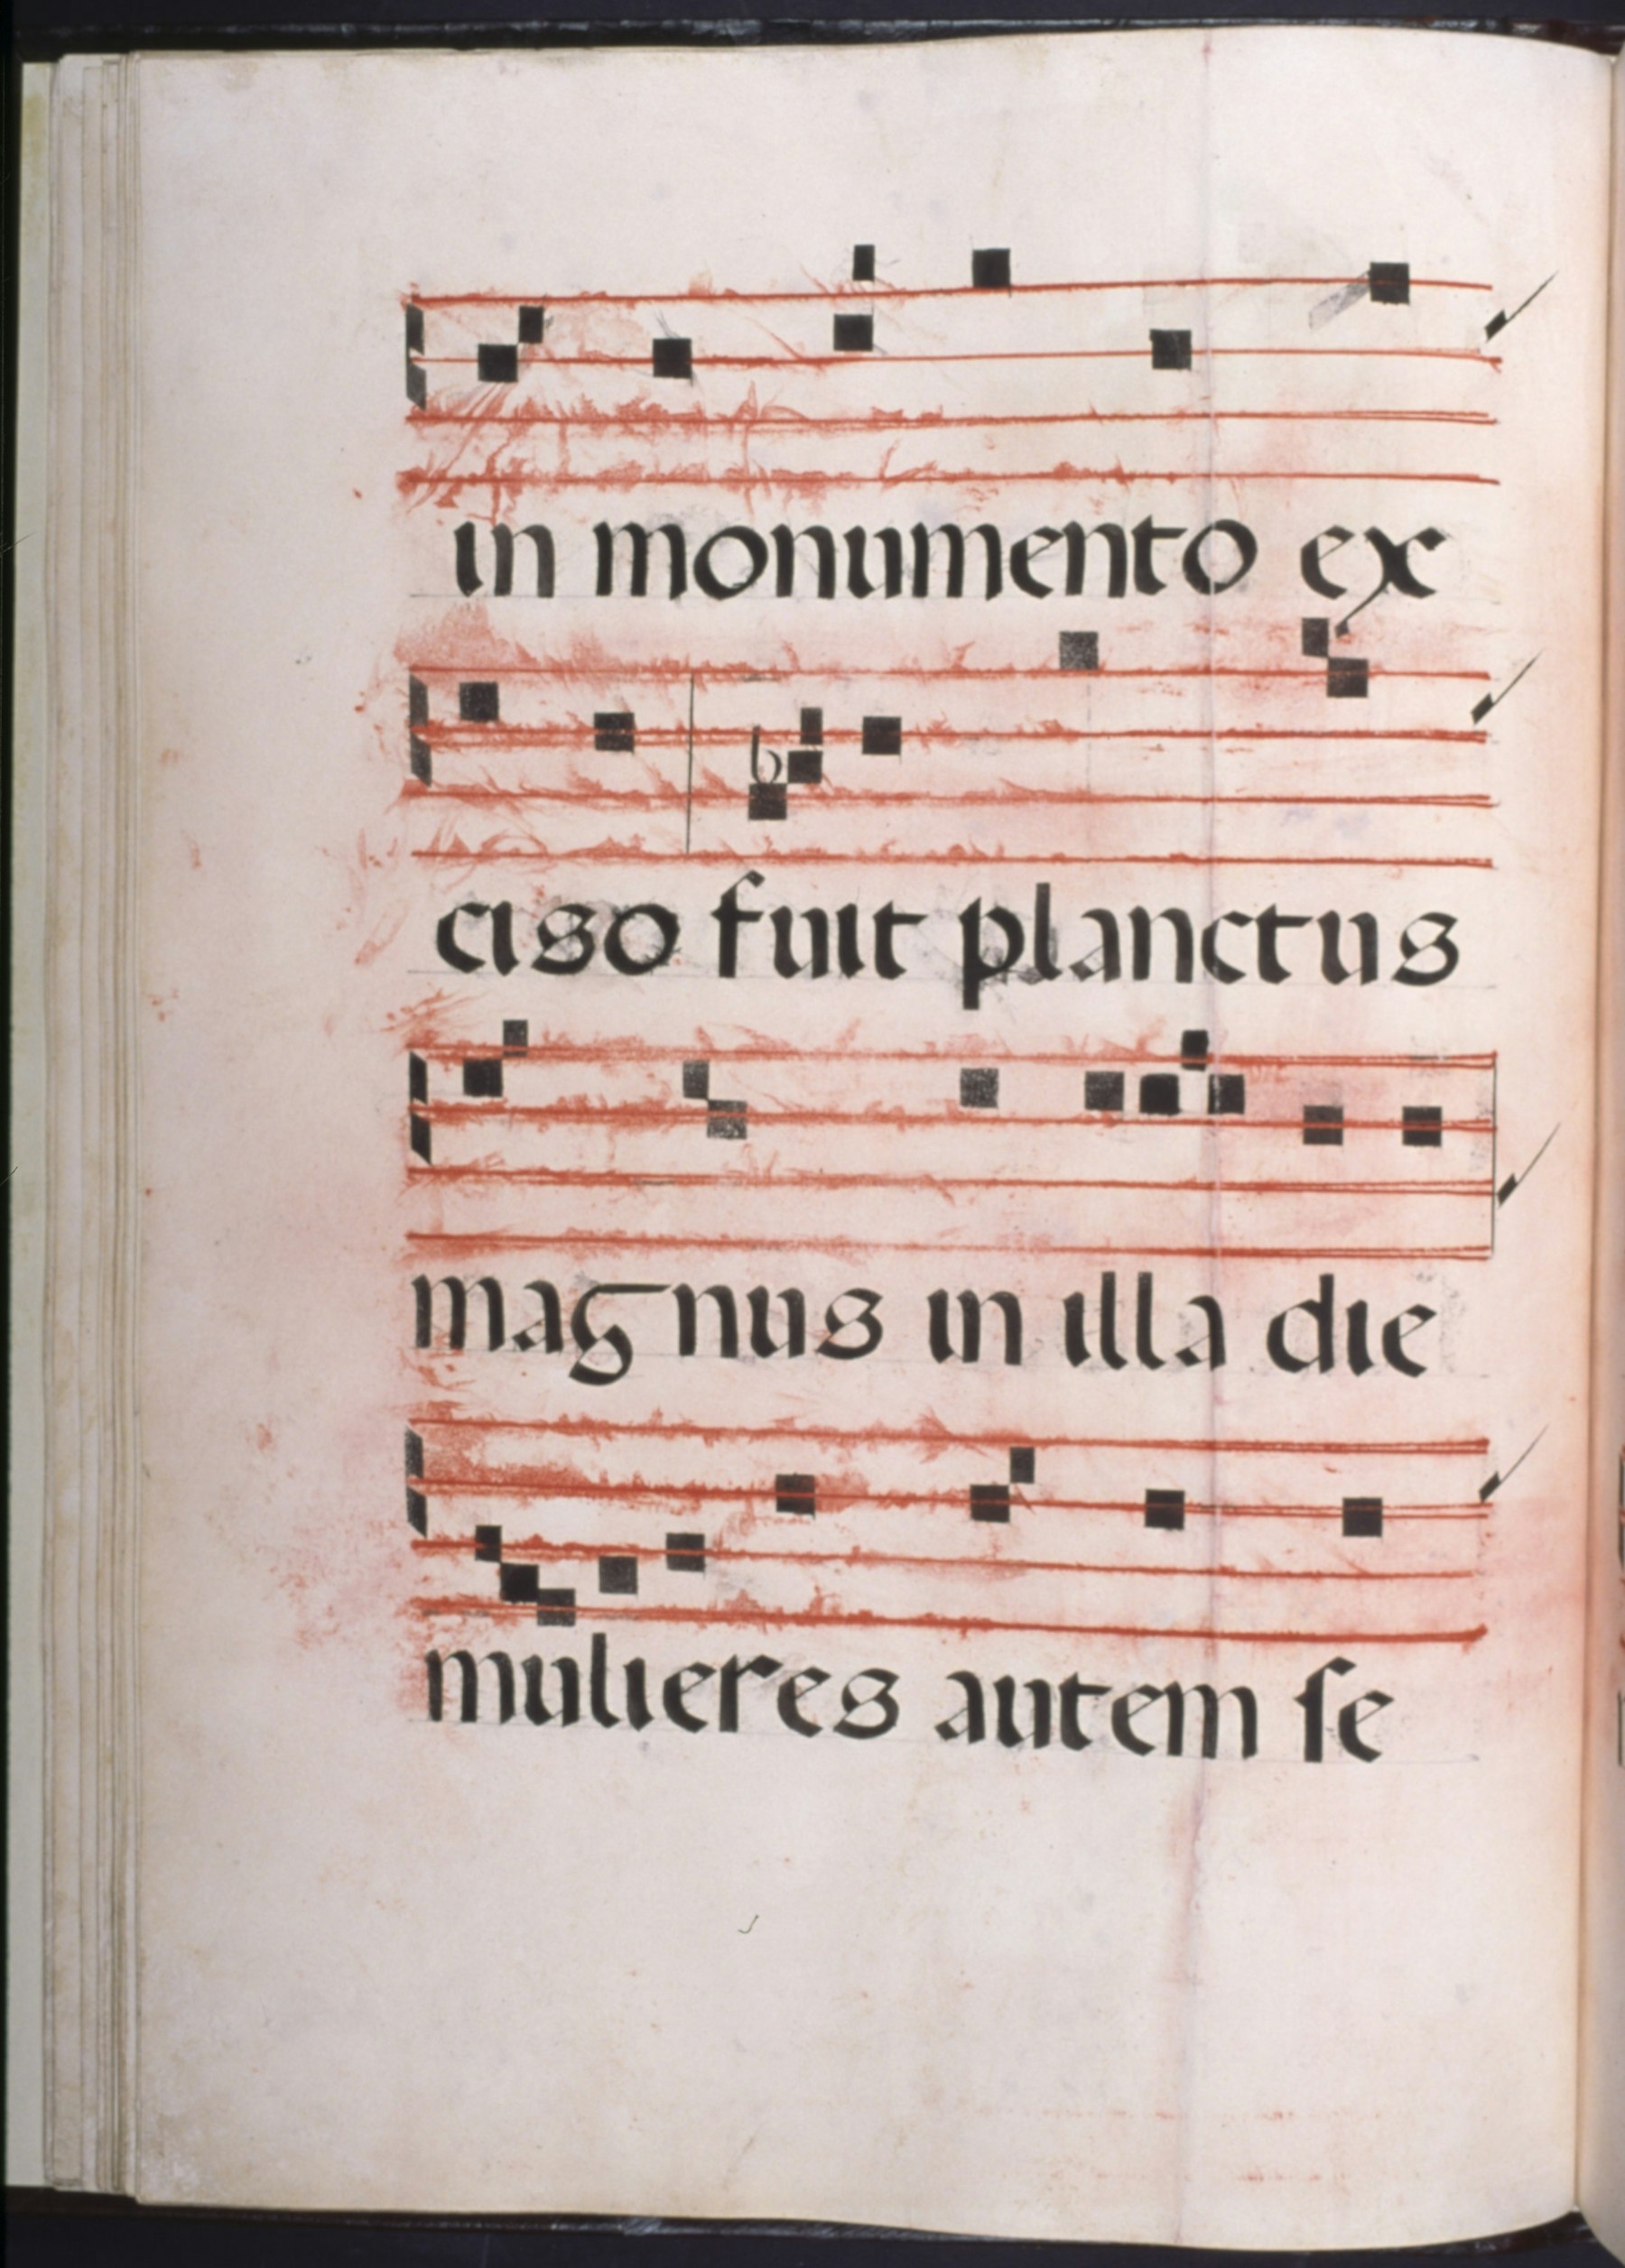 in monumento ex
ciso fuit planctus
magnus in illa die
mulieres autem ſe